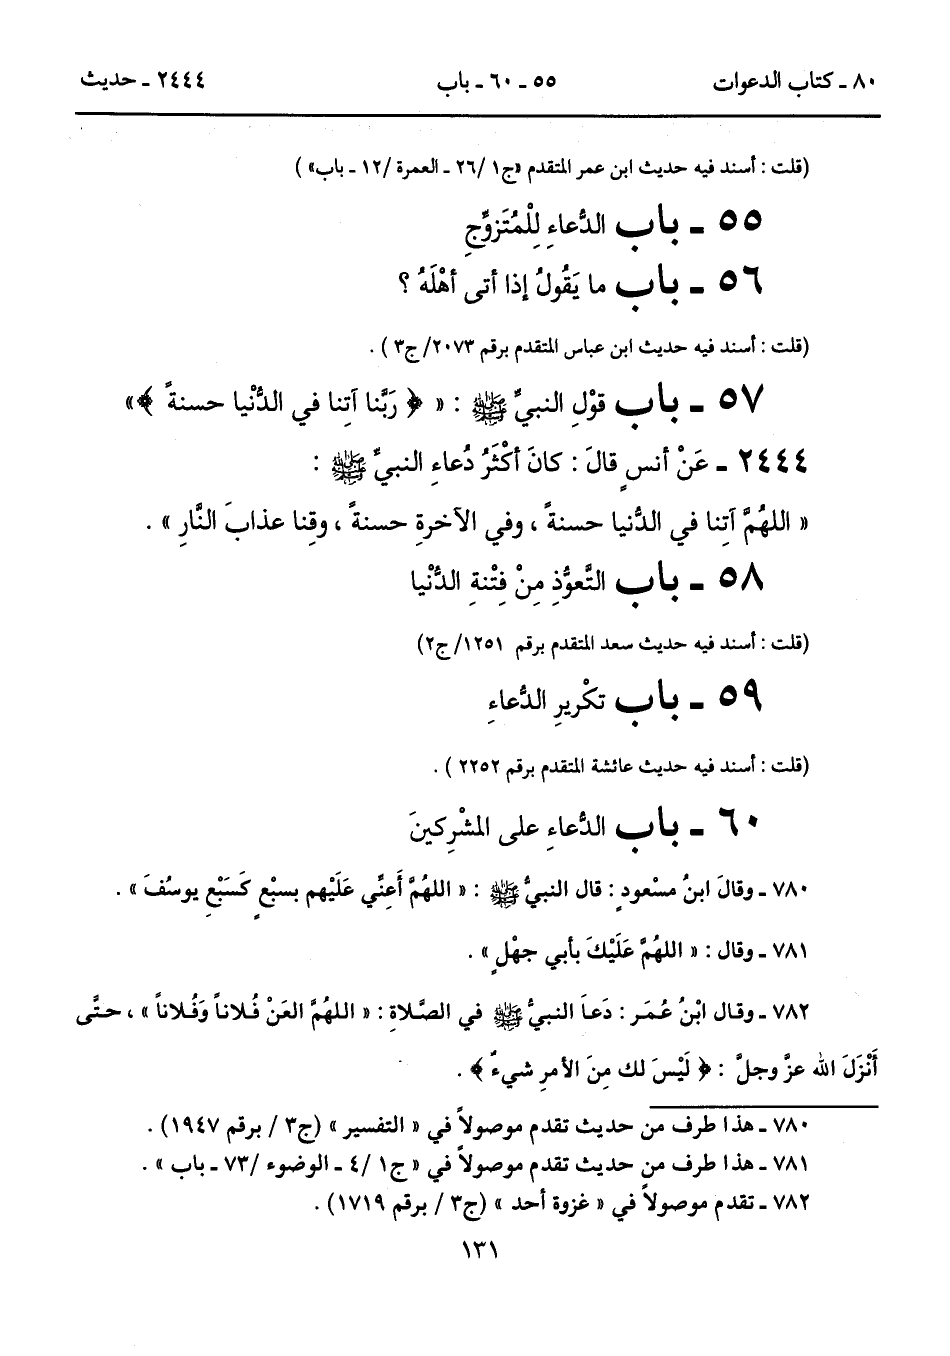 ٨٠ ـ كتاب الدعوات ٥٥ ـ ٦٠ ـ باب ٢٤٤٤ ـ حديث
(قلت : أسند فيه حديث ابن عمر المتقدم «ج١ /٢٦ ـ العمرة /١٢ ـ باب» )
٥٥ ـ باب الدُّعاءِ لِلْمُتَزوِّجِ
٥٦ ـ باب ما يَقُولُ إذا أتى أهْلَهُ ؟
(قلت : أسند فيه حديث ابن عباس المتقدم برقم ٢٠٧٣/ ج٣ ) .
٥٧ ـ باب قوْلِ النبيِّ ﷺ : « ﴿ رَبَّنا آتِنا في الدُّنْيا حسنةً ﴾»
٢٤٤٤ ـ عَنْ أنسٍ قالَ : كانَ أكْثَرُ دُعاءِ النبيِّ ﷺ :
« اللهُمَّ آتِنا في الدُّنيا حسنةً ، وفي الآخرةِ حسنةً ، وقِنا عذابَ النَّارِ » .
٥٨ ـ باب التَّعوُّذِ مِنْ فِتْنةِ الدُّنْيا
(قلت : أسند فيه حديث سعد المتقدم برقم ١٢٥١/ ج٢)
٥٩ ـ باب تكْريرِ الدُّعاءِ
(قلت : أسند فيه حديث عائشة المتقدم برقم ٢٢٥٢ ) .
٦٠ ـ باب الدُّعاءِ على المشْرِكينَ
٧٨٠ ـ وقالَ ابنُ مسْعودٍ : قال النبيُّ ﷺ : « اللهُمَّ أَعِنِّي عَلَيْهم بسبْعٍ كَسَبْعِ يوسُفَ » .
٧٨١ ـ وقال : « اللهُمَّ عَلَيْكَ بأبي جهْلٍ » .
٧٨٢ ـ وقال ابْنُ عُمَر : دَعـَا النبيُّ ﷺ في الصَّلاةِ : « اللهُمَّ العَنْ فُلاناً وَفُلاناً » ، حـتَّى
أَنْزَلَ الله عزَّ وجلَّ : ﴿ لَيْسَ لك مِنَ الأمرِ شيءٌ ﴾ .
٧٨٠ ـ هذا طرف من حديث تقدم موصولاً في « التفسير » (ج٣ / برقم ١٩٤٧) .
٧٨١ ـ هذا طرف من حديث تقدم موصولاً في « ج١ /٤ ـ الوضوء /٧٣ ـ باب » .
٧٨٢ ـ تقدم موصولاً في « غزوة أحد » (ج٣ / برقم ١٧١٩) .
١٣١